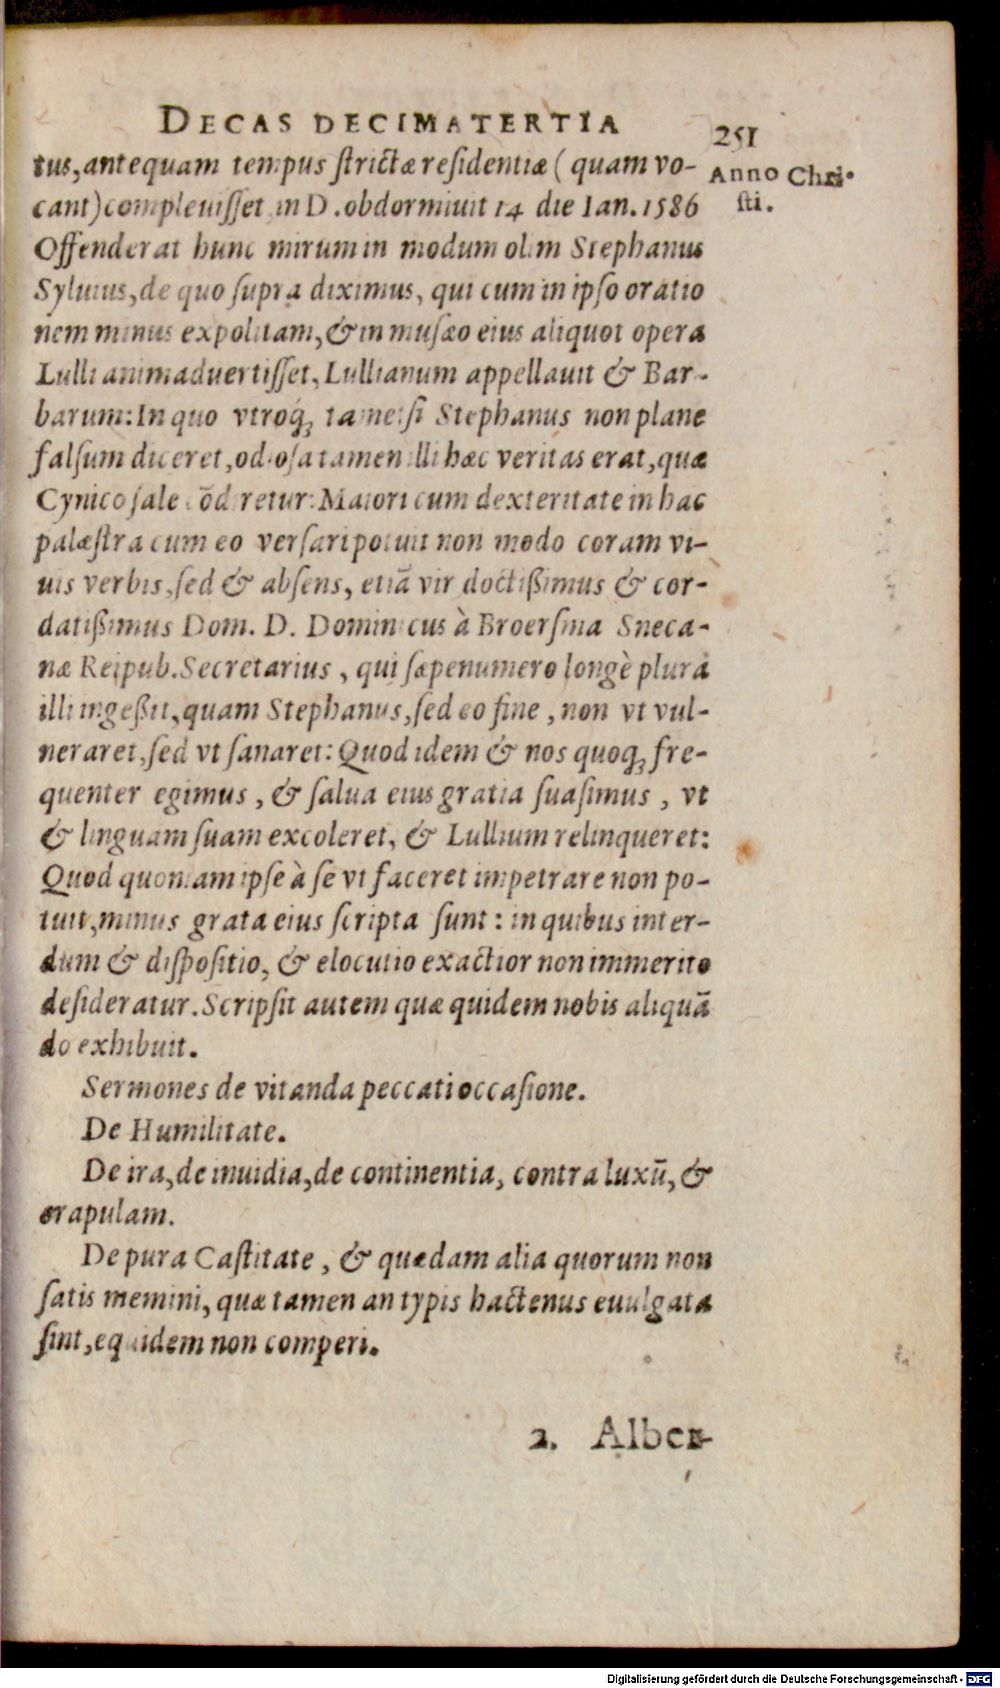 DECAS DECIMATERTIA 251
Anno Chri-
sti.
tus, antequam tempus ſtrictæ reſidentiæ (quam vo-
cant) compleuiſſet in D. obdormiuit 14 die Ian. 1586
Offenderat hunc mirum in modum olim Stephanus
Syluius, de quo ſupra diximus, qui cum in ipſo oratio
nem minus expolitam, & in muſæo eius aliquot opera
Lulli animaduertiſſet, Lullianum appellauit & Bar-
barum: In quo vtroq; tametſi Stephanus non plane
falſum diceret, odioſa tamen illi hæc veritas erat, quæ
Cynico ſale cōdiretur: Maiori cum dexteritate in hac
palæſtra cum eo verſari potuit non modo coram vi-
uis verbis, ſed & abſens, etiā vir doctißimus & cor-
datißimus Dom. D. Dominicus à Broerſma Sneca-
næ Reipub. Secretarius, qui ſæpenumero longè plura
illi ingeßit, quam Stephanus, ſed eo fine, non vt vul-
neraret, ſed vt ſanaret: Quod idem & nos quoq; fre-
quenter egimus, & ſalua eius gratia ſuaſimus, vt
& linguam ſuam excoleret, & Lullium relinqueret:
Quod quoniam ipſe à ſe vt faceret impetrare non po-
tuit, minus grata eius ſcripta ſunt: in quibus inter-
dum & diſpoſitio, & elocutio exactior non immerito
deſideratur. Scripſit autem quæ quidem nobis aliquā
do exhibuit.
Sermones de vitanda peccati occaſione.
De Humilitate.
De ira, de inuidia, de continentia, contra luxū, &
crapulam.
De pura Caſtitate, & quædam alia quorum non
ſatis memini, quæ tamen an typis hactenus euulgata
ſint, equidem non comperi.
2. Alber-
Digitalisierung gefördert durch die Deutsche Forschungsgemeinschaft - DFG